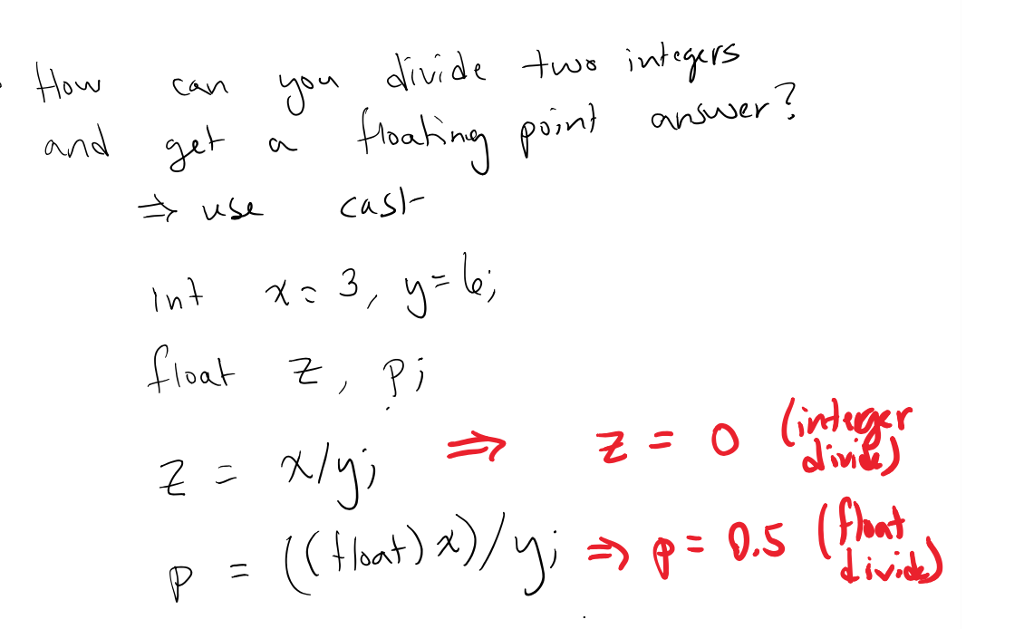 How can you divide two integers
and get a floating point answer?
⇒ use cast
int x = 3, y = 6;
float z, p;
z = x/y; ⇒ z = 0 (interger
divide)
p = ((float) x)/y; ⇒ p = 0.5 (float
divide)